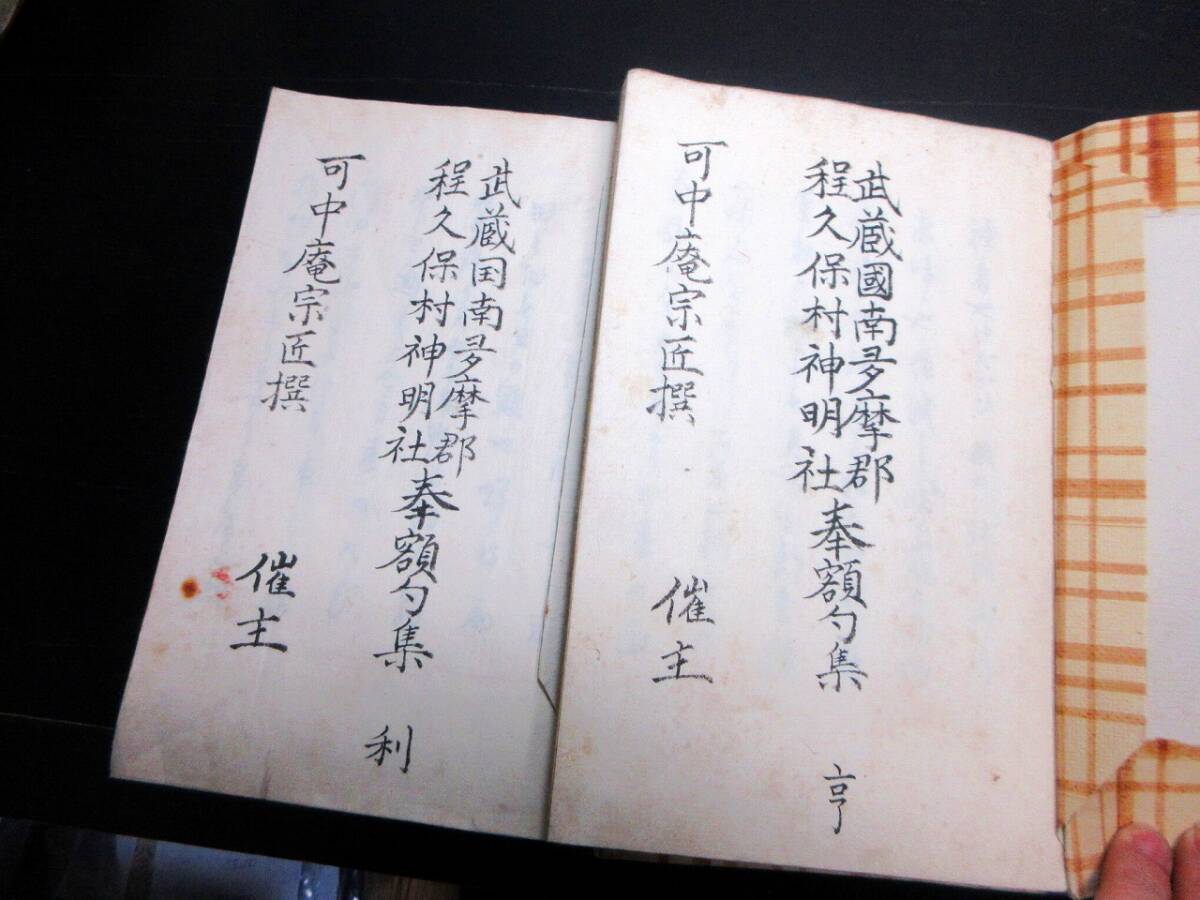 武蔵國南多摩郡
程久保村神明社奉額勺集 亨
可中庵宗匠撰 催主
武蔵国南多摩郡
程久保村神明社奉額勺集 利
可中庵宗匠撰 催主